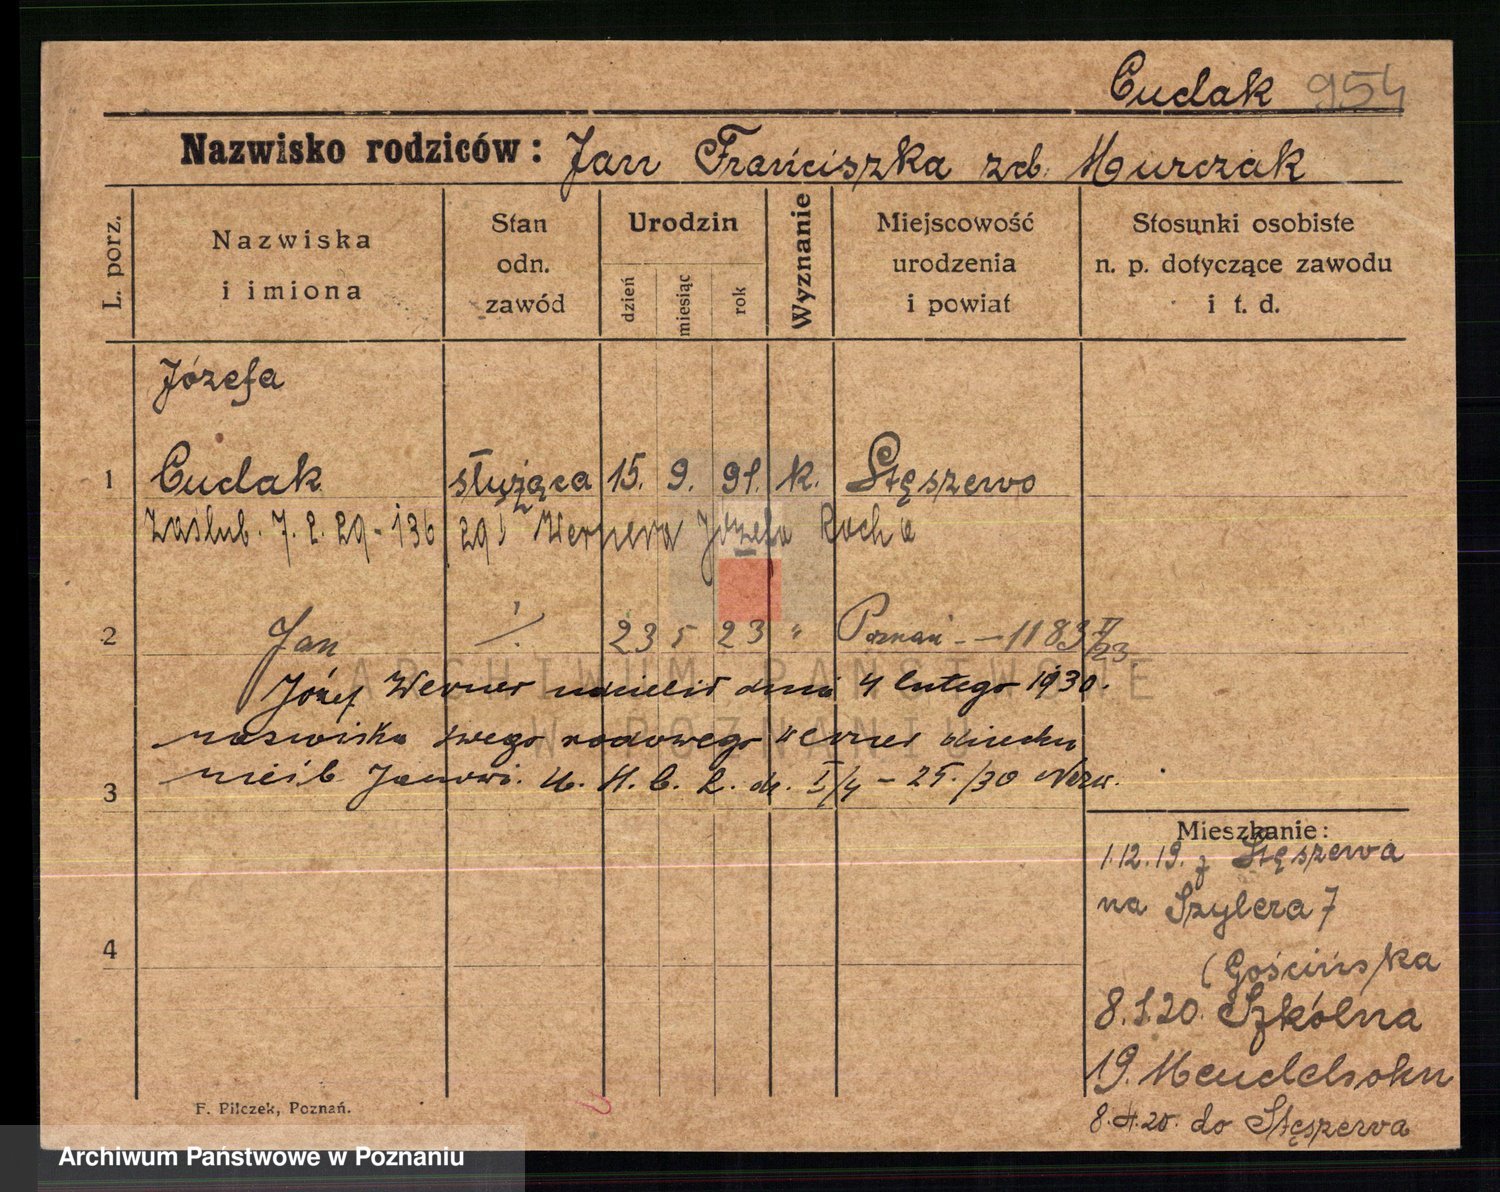 Cudak 954
Nazwisko rodziców: Jan Franciszka zd. Murczak
L. porz.
Nazwiska i imiona
Stan odn. zawód
Urodzin
dzień
miesiąc
rok
Wyznanie
Miejscowość urodzenia i powiat
Stosunki osobiste n. p. dotyczące zawodu i t. d.
Józefa
1 Cudak służąca 15. 9. 91. k. Stęszewo
Zaślub. 7. 2. 29 - 136/29 Wernera Józefa Rocha
2 Jan 23 5 23 " Poznań - 1183 II/23
Józef Werner udzielił dnia 4 lutego 1930.
nazwiska swego rodowego Werner dziecku
3 nieśl. Janowi. U. S. C. I/4 - 25./30
Mieszkanie:
1.12.19. z Stęszewa
na Szylera 7
(Gościńska
4
8.1.20. Szkólna
19. Mendelsohn
8.4.20. do Stęszewa
F. Pilczek, Poznań.
ARCHIWUM PAŃSTWOWE
W POZNANIU
Archiwum Państwowe w Poznaniu